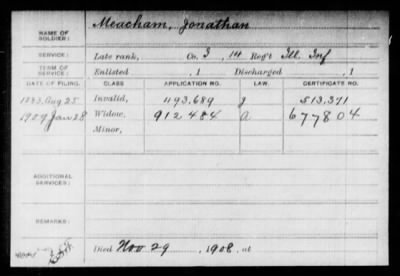 NAME OF SOLDIER: Meacham, Jonathan
SERVICE: Late rank, Co. I, 14 Reg't Ill Inf
TERM OF SERVICE: Enlisted , 1 Discharged , 1
DATE OF FILING. CLASS APPLICATION NO. LAW. CERTIFICATE NO.
1883 Aug 25 Invalid, 493,689 513,371
1909 Jan 28 Widow, 912484 a 677804
Minor,
ADDITIONAL SERVICES:
REMARKS:
Died Nov 29, 1908, at